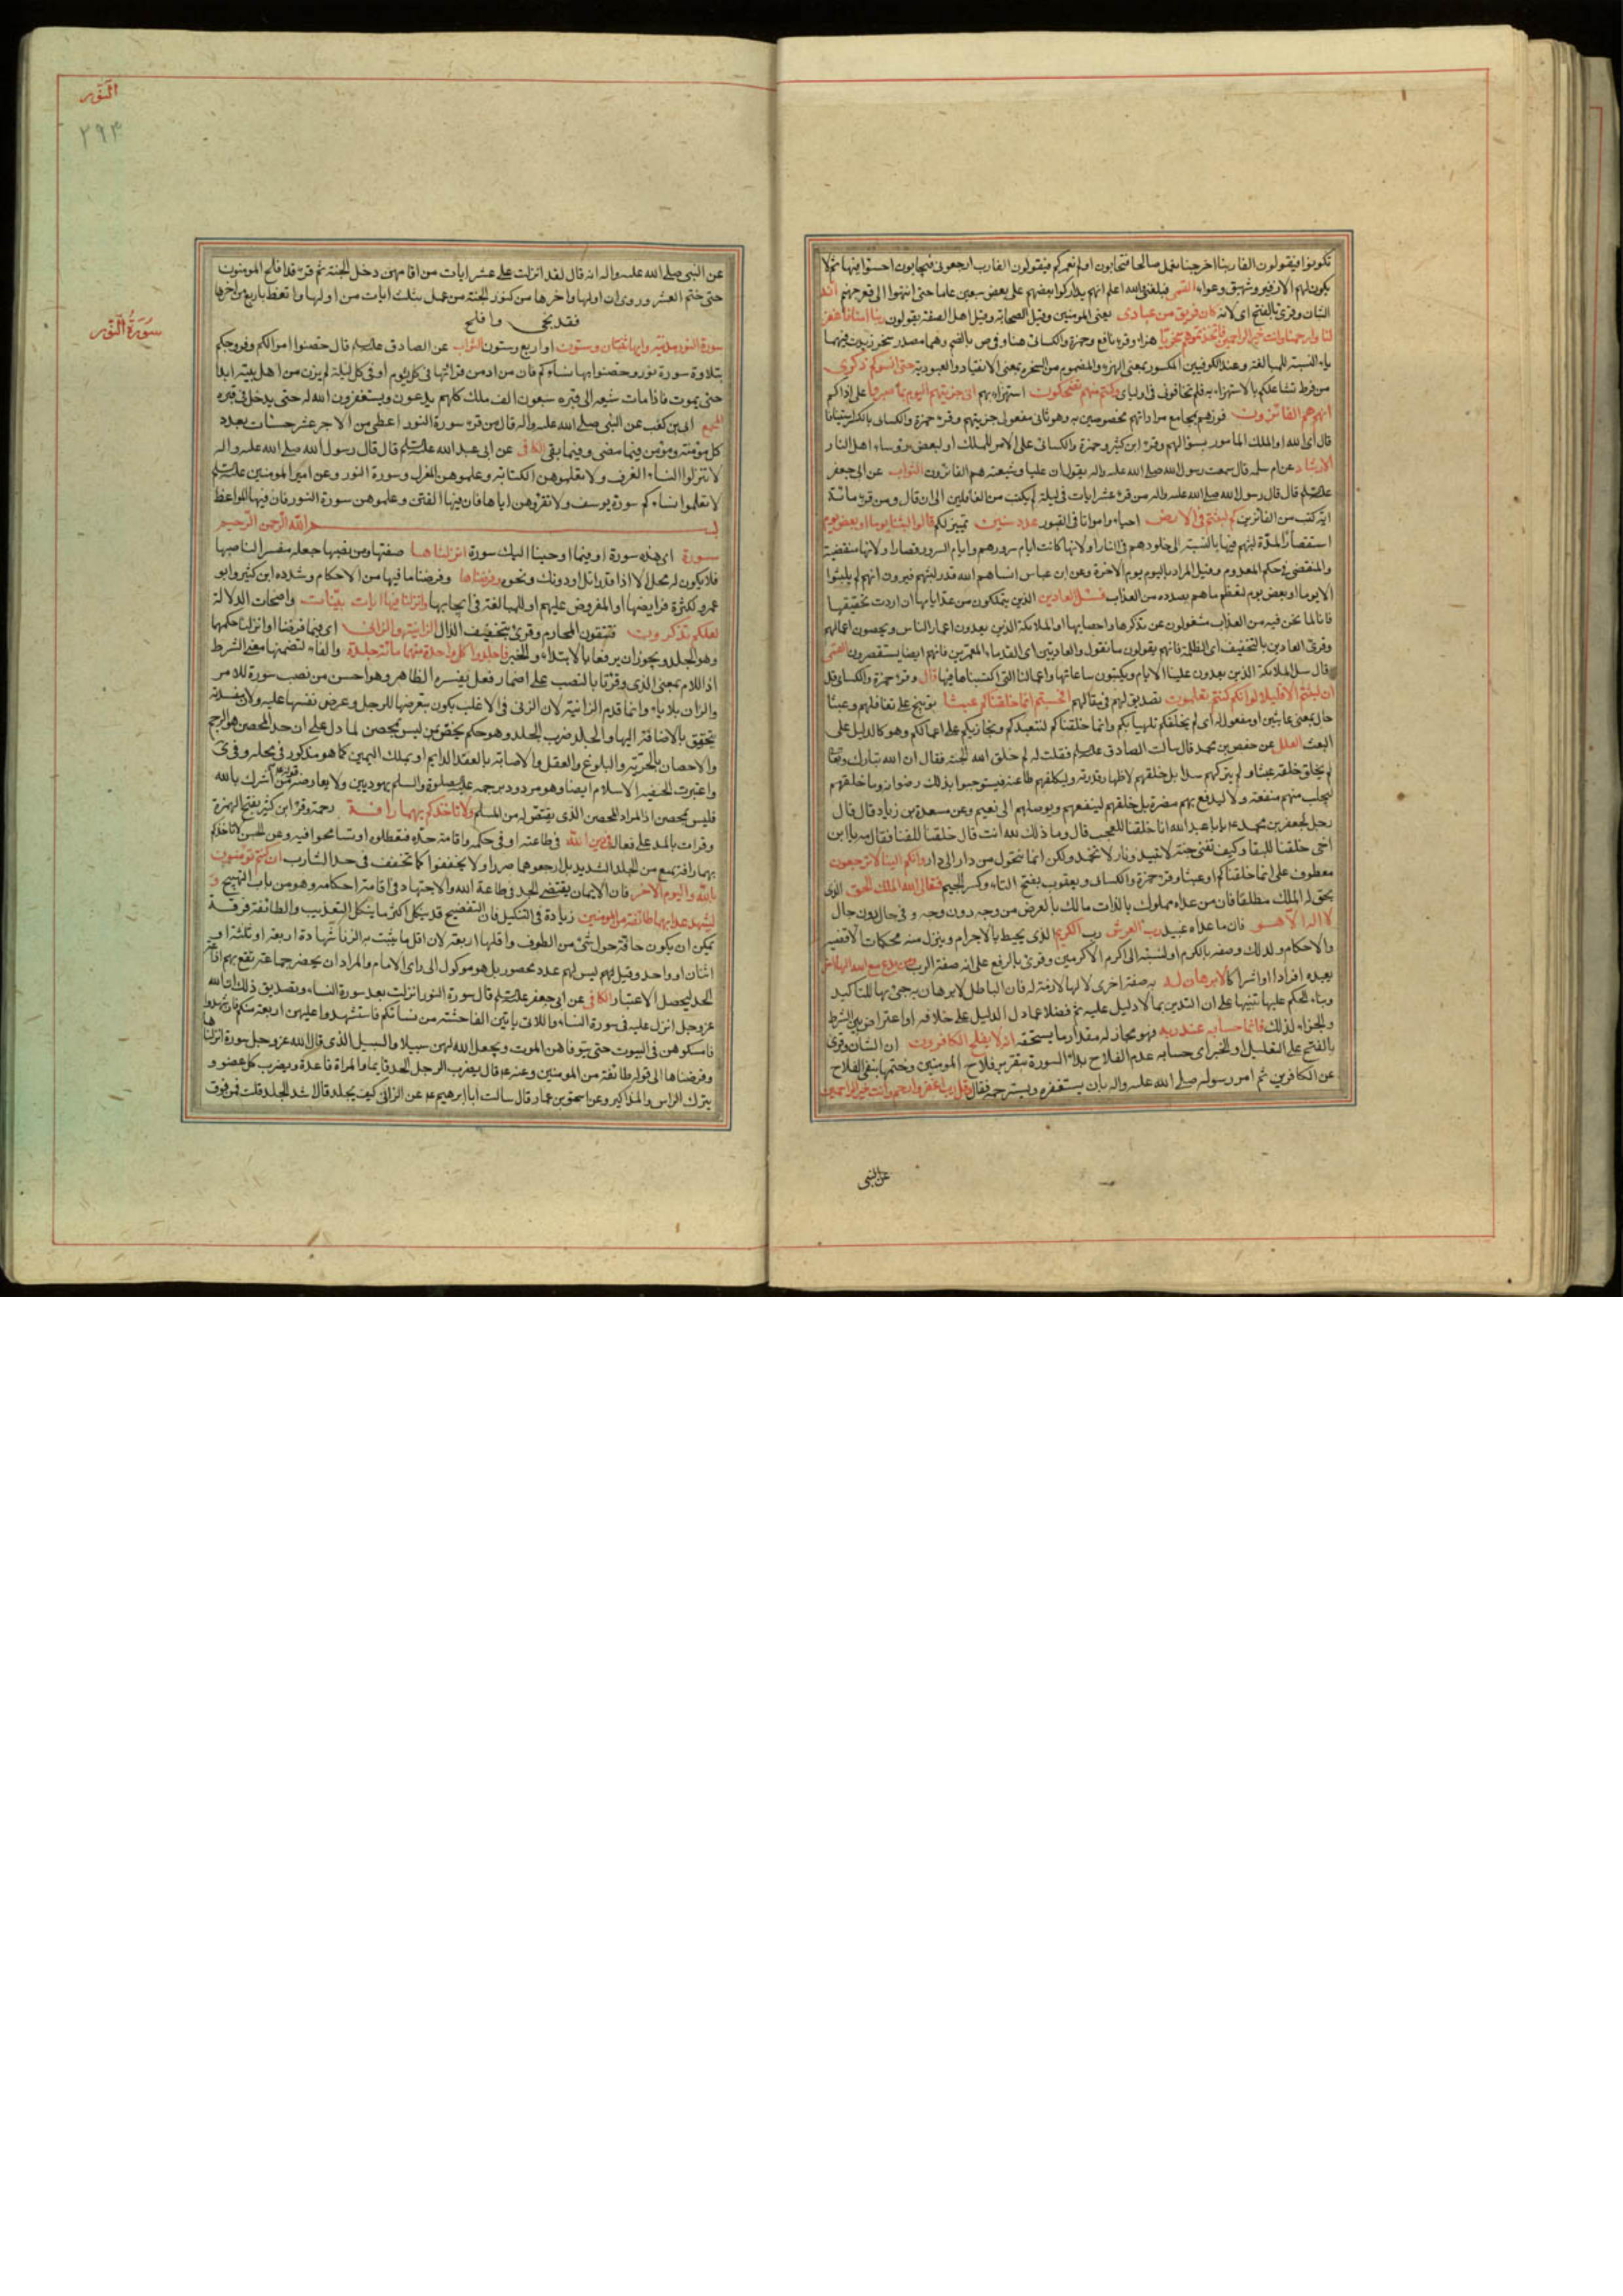 تكونوا فيقولون الفا ربنا اخرجنا نعمل صالحا فيجابون اولم نعمركم فيقولون الفا رب ارجعون فيجابون اخسئوا فيها ثم لا
يكون لهم الا زفير وشهيق وعواء القمى فبلغنى والله اعلم انهم يتداركوا بعضهم على بعض سبعين عاما حتى انتهوا الى قعر جهنم انه
الشان وقرئ بالفتح اى لانه كان فريق من عبادى يعنى المومنين وقيل الصحابة وقيل اهل الصفة يقولون ربنا امنا فاغفر
لنا وارحمنا وانت خير الراحمين فاتخذتموهم سخريا هزاء وقرء نافع وحمزة والكسائى هنا وفى ص بالضم وهما مصدر سخر زيدت فيهما
ياء النسبة للمبالغة وعند الكوفيين المكسور بمعنى الهزء والمضموم من السخرة بمعنى الانقياد والعبودية حتى انسوكم ذكرى
من فرط تشاغلكم بالاستهزاء به فلم تخافونى فى اوليائى وكنتم منهم تضحكون استهزاء بهم انى جزيتهم اليوم بما صبروا على اذاكم
انهم هم الفائزون فوزهم بمجامع مراداتهم مخصوصين به وهو ثانى مفعولى جزيتهم وقرء حمزة والكسائى بالكسر استينافا
قال اى الله او الملك المامور بسؤالهم وقرء ابن كثير وحمزة والكسائى على الامر للملك او لبعض رؤساء اهل النار
الارشاد عن ام سلمة قال سمعت رسول الله صلى الله عليه واله يقول ان عليا وشيعته هم الفائزون الثواب عن ابى جعفر
عليه السلام قال قال رسول الله صلى الله عليه واله من قرء عشر ايات فى ليلة لم يكتب من الغافلين الى ان قال ومن قرء مائة
اية كتب من الفائزين كم لبثتم فى الارض احياء وامواتا فى القبور عدد سنين تمييز لكم قالوا لبثنا يوما او بعض يوم
استقصارا لمدة لبثهم فيها بالنسبة الى خلودهم فى النار او لانها كانت ايام سرورهم وايام السرور قصار او لانها منقضية
والمنقضى فى حكم المعدوم وقيل المراد باليوم يوم الاخرة وعن ابن عباس انساهم الله قدر لبثهم فيرون انهم لم يلبثوا
الا يوما او بعض يوم لعظم ما هم بصدده من العذاب فسئل العادين الذين يتمكنون من عد ايامها ان اردت تحقيقها
فانا لما نحن فيه من العذاب مشغولون عن تذكرها واحصايها او الملائكة الذين يعدون اعمار الناس ويحصون اعمالهم
وقرئ العادين بالتخفيف اى الظلمة فانهم يقولون ما نقول والعاديين اى القدماء المعمرين فانهم ايضا يستقصرون القمى
قال سل الملائكة الذين يعدون علينا الايام ويكتبون ساعاتها واعمالنا التى اكتسبناها فيها قال وقرء حمزة والكسائى قل
ان لبثتم الا قليلا لو انكم كنتم تعلمون تصديق لهم فى مقالهم افحسبتم انما خلقناكم عبثا توبيخ على تغافلهم وعبثا
حال بمعنى عابثين او مفعول له اى لم يخلقكم تلهيا بكم وانما خلقناكم لنتعبدكم ونجازيكم على اعمالكم وهو كالدليل على
البعث العلل عن حفص بن محمد قال سالت الصادق عليه السلام فقلت له لم خلق الله الجنة فقال ان الله تبارك وتعالى
لم يخلق خلقه عبثا ولم يتركهم سدا بل خلقهم لاظهار قدرته وليكلفهم طاعته فيستوجبوا بذلك رضوانه وما خلقهم
ليجلب منهم منفعة ولا ليدفع بهم مضرة بل خلقهم لينفعهم ويوصلهم الى نعيم وعن مسعدة بن زياد قال قال
رجل لجعفر بن محمد يا ابا عبد الله انا خلقنا للعجب قال وما ذلك لله انت قال خلقنا للفنا فقال مه يا ابن
اخى خلقنا للبقا وكيف تفنى جنة لا تبيد ونار لا تخمد ولكن انما نتحول من دار الى دار وانكم الينا لا ترجعون
معطوف على انما خلقناكم او عبثا وقرء حمزة والكسائى ويعقوب بفتح التاء وكسر الجيم فتعالى الله الملك الحق الذى
يحق له الملك مطلقا فان من عداه مملوك بالذات مالك بالعرض من وجه دون وجه وفى حال دون حال
لا اله الا هو فان ما عداه عبيد رب العرش رب الكريم الذى يحيط بالاجرام وينزل منه محكمات الاقضية
والاحكام ولذلك وصفه بالكرم او لنسبته الى اكرم الاكرمين وقرئ بالرفع على انه صفة الرب ومن يدع مع الله الها اخر
يعبده افرادا او اشراكا لا برهان له به صفة اخرى لالها لازمة له فان الباطل لا برهان به جئ بها للتاكيد
وبناء الحكم عليها تنبيها على ان التدين بما لا دليل عليه ثم فضلا عما دل الدليل على خلافه او اعتراض بين الشرط
والجزاء لذلك فانما حسابه عند ربه فهو مجاز له مقدار ما يستحقه انه لا يفلح الكافرون ان الشان وقرئ
بالفتح على التعليل او الخبر اى حسابه عدم الفلاح بدأ السورة بتقرير فلاح المومنين وختمها بنفى الفلاح
عن الكافرين ثم امر رسوله صلى الله عليه واله بان يستغفره ويسترحمه فقال وقل رب اغفر وارحم وانت خير الراحمين
عن النبى
النور
٢٩٤
عن النبى صلى الله عليه واله انه قال لقد انزلت على عشر ايات من اقامهن دخل الجنة ثم قرء قد افلح المومنون
حتى ختم العشر وروى ان اولها واخرها من كنوز الجنة من عمل بثلث ايات من اولها واتعظ باربع من اخرها
فقد نجى وافلح
سورة النور
سورة النور مدنية وايها ثنتان وستون او اربع وستون الثواب عن الصادق عليه السلام قال حصنوا اموالكم وفروجكم
بتلاوة سورة نور وحصنوا بها نساءكم فان من ادمن قرائتها فى كل يوم او فى كل ليلة لم يزن من اهل بيته ابدا
حتى يموت فاذا مات شيعه الى قبره سبعون الف ملك كلهم يدعون ويستغفرون الله له حتى يدخل فى قبره
المجمع ابى بن كعب عن النبى صلى الله عليه واله قال من قرء سورة النور اعطى من الاجر عشر حسنات بعدد
كل مومنة ومومن فيما مضى وفيما بقى الكافى عن ابى عبد الله عليه السلام قال قال رسول الله صلى الله عليه واله
لا تنزلوا النساء الغرف ولا تعلموهن الكتابة وعلموهن المغزل وسورة النور وعن امير المومنين عليه السلام
لا تعلموا نساءكم سورة يوسف ولا تقرؤهن اياها فان فيها الفتن وعلموهن سورة النور فان فيها المواعظ
بسم الله الرحمن الرحيم
سورة اى هذه سورة او فيما اوحينا اليك سورة انزلناها صفتها ومن نصبها جعله مفسر الناصبها
فلا يكون له محل الا اذا قدر اتل او دونك ونحوه وفرضناها وفرضنا ما فيها من الاحكام وشدده ابن كثير وابو
عمرو لكثرة فرايضها او المفروض عليهم او للمبالغة فى ايجابها وانزلنا فيها ايات بينات واضحات الدلالة
لعلكم تذكرون فتتقون المحارم وقرئ بتخفيف الذال الزانية والزانى اى فيما فرضنا او انزلنا حكمهما
وهو الجلد ويجوز ان يرفعا بالابتداء والخبر فاجلدوا كل واحدة منهما مائة جلدة والفاء لتضمنها معنى الشرط
اذ اللام بمعنى الذى وقرئا بالنصب على اضمار فعل يفسره الظاهر وهو احسن من نصب سورة للامر
والزان بلا ياء وانما قدم الزانية لان الزنى فى الاغلب يكون بتعرضها للرجل وعرض نفسها عليه ولان مفسدته
يتحقق بالاضافة اليها والجلد ضرب الجلد وهو حكم يختص بمن ليس بمحصن لما دل على ان حد المحصن هو الرجم
والاحصان بالحرية والبلوغ والعقل والاصابة بالعقد الدايم او بملك اليمين كما هو مذكور فى محله وفرق
واعتبرت الحنفية الاسلام ايضا وهو مردود برجمه عليه الصلوة والسلم يهوديين ولا يعارضه قوله من اشرك بالله
فليس بمحصن اذ المراد المحصن الذى يقتص له من المسلم ولا تاخذكم بهما رافة رحمة وقرء ابن كثير بفتح الهمزة
وقرات بالمد على فعالة فى دين الله فى طاعته او فى حكمه واقامة حده فتعطلوه او تسامحوا فيه وعن الحسن لا تاخذكم
بهما رافة تمنع من الجلد الشديد بل ارجعوهما ضربا ولا يخففوا كما تخفف فى حد الشارب ان كنتم تومنون
بالله واليوم الاخر فان الايمان يقتضى الجد فى طاعة الله والاجتهاد فى اقامة احكامه وهو من باب التهييج و
ليشهد عذابهما طائفة من المومنين زيادة فى التنكيل فان التفضيح قد ينكل اكثر ما ينكل التعذيب والطائفة فرقة
يمكن ان يكون حافة حول شئ من الطوف واقلها اربعة لان اقل ما يثبت به الزنا شهادة اربعة او ثلثة او
اثنان او واحد وقيل لهم ليس لهم عدد محصور بل هو موكول الى راى الامام والمراد ان يحضر جماعة تقع بهم اقامة
الحد ليحصل الاعتبار الكافى عن ابى جعفر عليه السلام قال سورة النور انزلت بعد سورة النساء وتصديق ذلك ان الله
عز وجل انزل عليه فى سورة النساء واللاتى ياتين الفاحشة من نسائكم فاستشهدوا عليهن اربعة منكم فان شهدوا
فامسكوهن فى البيوت حتى يتوفاهن الموت ويجعل الله لهن سبيلا والسبيل الذى قال الله عز وجل سورة انزلناها
وفرضناها الى قوله طائفة من المومنين وعنه قال يضرب الرجل الحد قايما والمراة قاعدة ويضرب كل عضو و
يترك الراس والمذاكير وعن اسحق بن عمار قال سالت ابا ابرهيم عن الزانى كيف يجلد قال اشد الجلد قلت فمن فوق